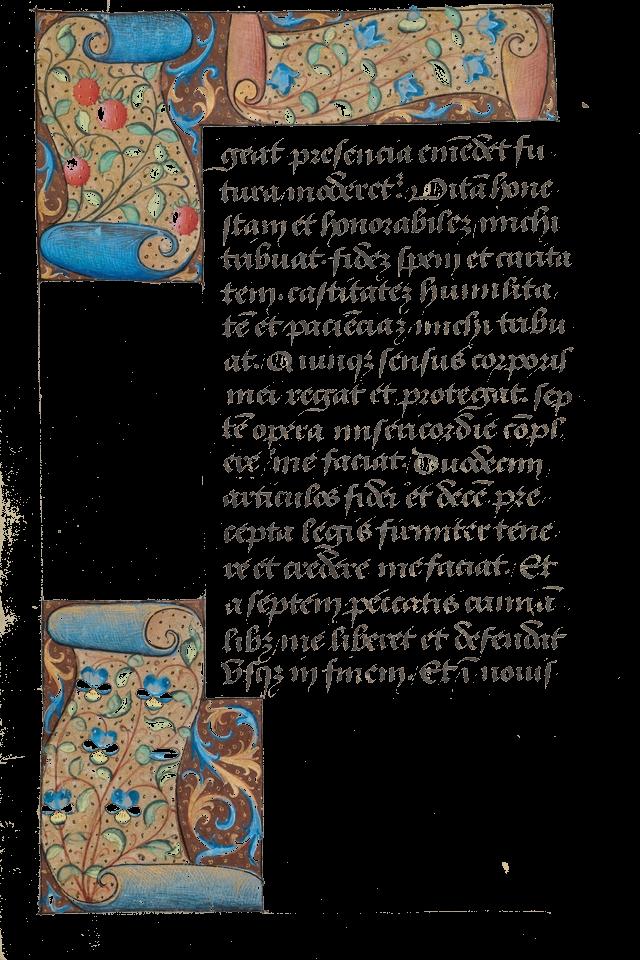 geat presencia emēdet fu
tura moderet᷑. Vitā hone
stam et honorabilez michi
tribuat. fidez spem et carita
tem. castitatez humilita
tē et paciēciaz michi tribu
at. Quinqz sensus corporis
mei regat et protegat. sep
tē opera misericordie cōpl
ere me faciat. Duodecim
articulos fidei et decē pre
cepta legis firmiter tene
re et credere me faciat. Et
a septem peccatis crimīa
libz me liberet et defendat
Vsqz in finem. Et ī nouis